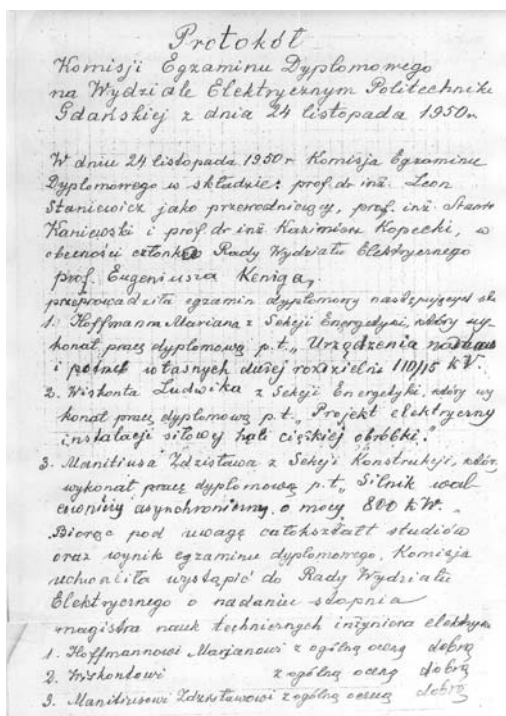 Protokół
Komisji Egzaminu Dyplomowego
na Wydziale Elektrycznym Politechniki
Gdańskiej z dnia 24 listopada 1950r.
W dniu 24 listopada 1950 r Komisja Egzaminu
Dyplomowego w składzie: prof. dr inż. Leon
Staniewicz jako przewodniczący, prof. inż.
Kaniewski i prof. dr inż Kazimierz Kopecki, w
obecności członka Rady Wydziału Elektrycznego
prof. Eugeniusza Keniga,
przeprowadziła egzamin dyplomowy następujących
1. Hoffmanna Mariana z Sekcji Energetyki, który wy-
konał pracę dyplomową p.t. „Urządzenia
i potrzeb własnych dużej rozdzielni 110/15 kV.
2. Wiskonta Ludwika z Sekcji Energetyki, który wy
konał pracę dyplomową p.t. „Projekt elektryczny
instalacji siłowej hali ciężkiej obróbki."
3. Manitiusa Zdzisława z Sekcji Konstrukcji, który
wykonał pracę dyplomową p.t. „Silnik wal-
cowniczy asynchroniczny o mocy 800 kW.
Biorąc pod uwagę całokształt studiów
oraz wynik egzaminu dyplomowego, Komisja
uchwaliła wystąpić do Rady Wydziału
Elektrycznego o nadanie stopnia
magistra nauk technicznych inżyniera elektryka
1. Hoffmannowi Marjanowi z ogólną oceną dobrą
2. Wiskontowi z ogólną oceną dobrą
3. Manitiusowi Zdzisławowi z ogólną oceną dobrą